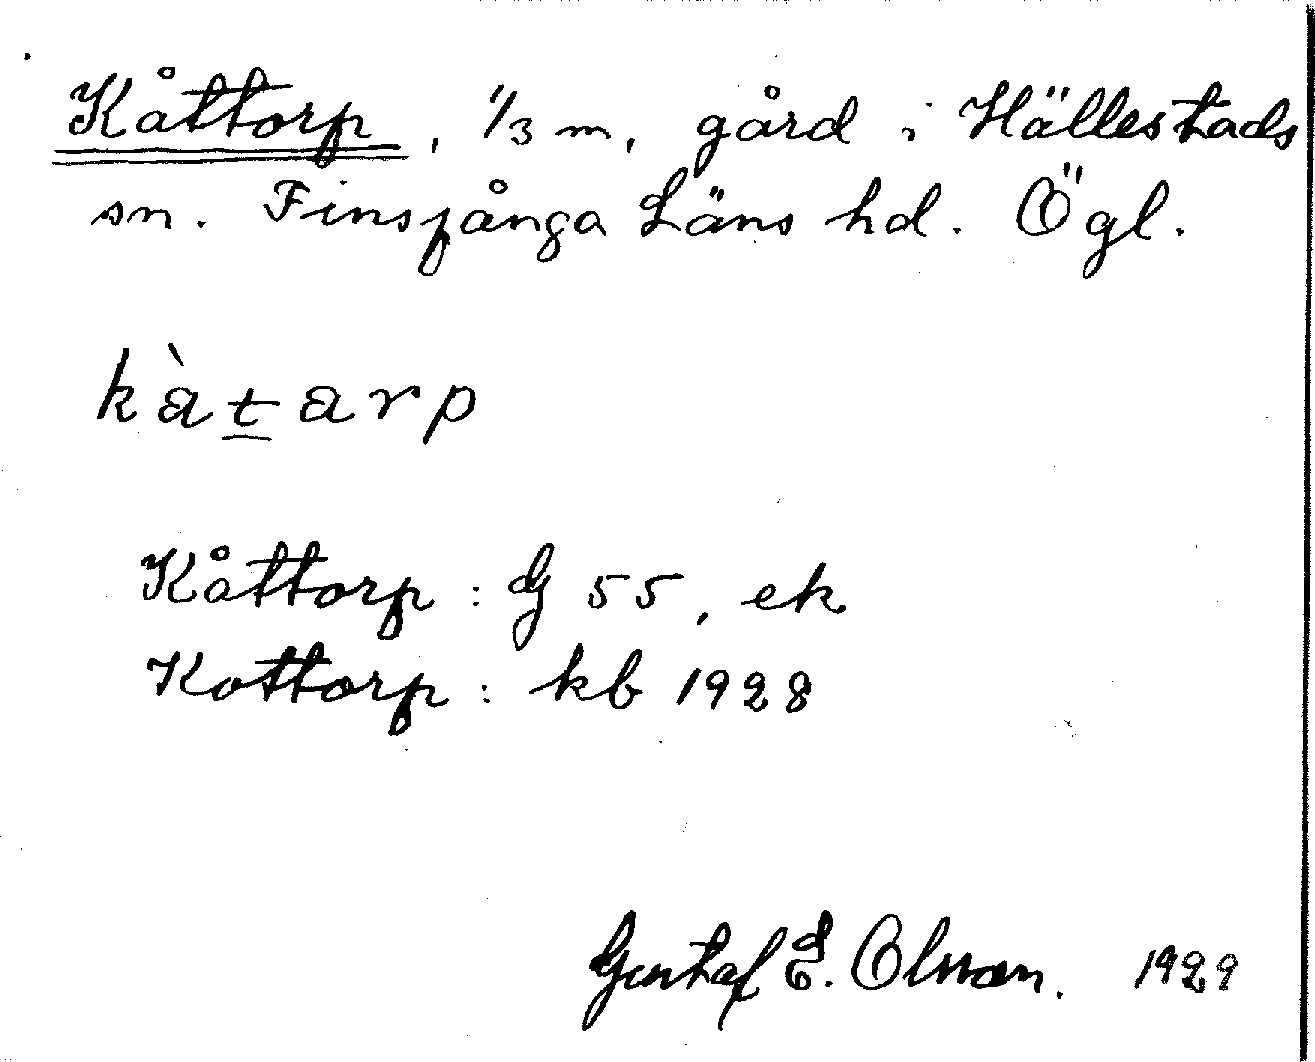 Kåttorp, 1/3 m, gård i Hällestads
sn. Finspånga Läns hd. Ögl.
kàtarp
Kåttorp : G 55, ek
Kottorp : kb 1928
Gustaf E. Olsson. 1929